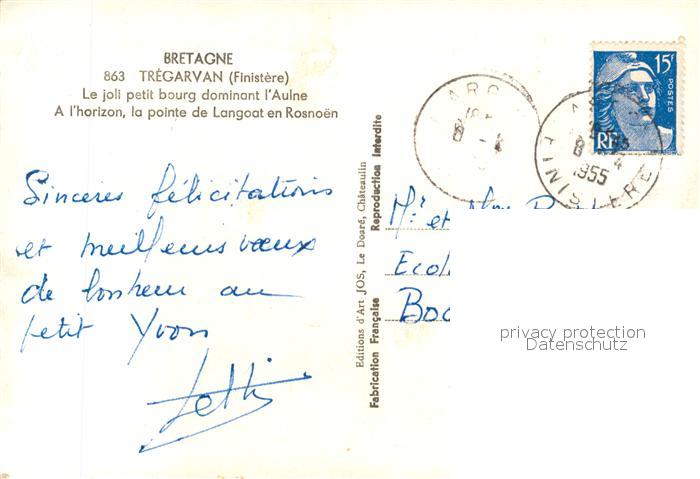 BRETAGNE
863 TRÉGARVAN (Finistère)
Le joli petit bourg dominant l'Aulne
A l'horizon, la pointe de Langoat en Rosnoën
Sincères félicitations
et meilleurs vœux
de bonheur au
petit Yvon
Editions d'Art JOS, Le Doaré, Châteaulin
Fabrication Française Reproduction Interdite
15F
POSTES
RF
8 - 4
1955
FINISTERE
Mr et Mme
Ecol
Boc
privacy protection
Datenschutz